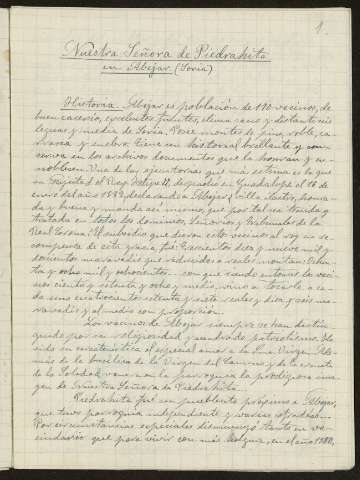 1.
Nuestra Señora de Piedrahita
en Abejar (Soria)
Historia. Abejar es población de 190 vecinos, de
buen caserío, excelentes fuentes, clima sano y distante seis
leguas y media de Soria. Posee montes de pino, roble,
y tiene en historia brillante y con
serva en los archivos documentos que la honran y en
noblecen. Una de las ejecutorias que más estima es la que
su Majestad el Rey Felipe II, despachó en Guadalupe el 16 de
enero del año declarando a Abejar, Villa
da y buena y mandando así mismo que por tal sea tenida y
tratada en todos los dominios, Señoríos y Tribunales de la
Real Corona. El subsidio que dieron estos vecinos al rey en re
compensa de esta gracia, fué: Trescientos diez y nueve mil y
doscientos maravedís que reducidos a reales montan:
ta y ocho mil y ochocientos con que siendo entonces los veci
nos ciento y setenta y ocho y medio, vino a tocarle a ca
da uno cuatrocientos setenta y siete reales y diez y seis ma
ravedís y al medio con proporción.
Los vecinos de Abejar siempre se han distin
guido por su religiosidad y acendrado patriotismo. Ha
sido su característica el especial amor a la Sma. Virgen. Ade
más de la basílica de la Virgen del Camino y de la ermita
de la Soledad, veneran en la parroquia la prodigiosa ima
gen de Nuestra Señora de Piedrahita.
Piedrahita fué un pueblecito próximo a Abejar,
que tuvo parroquia independiente y varias cofradías.
Por circunstancias especiales disminuyó tanto su ve
cindario que para vivir con más holgura, en el año